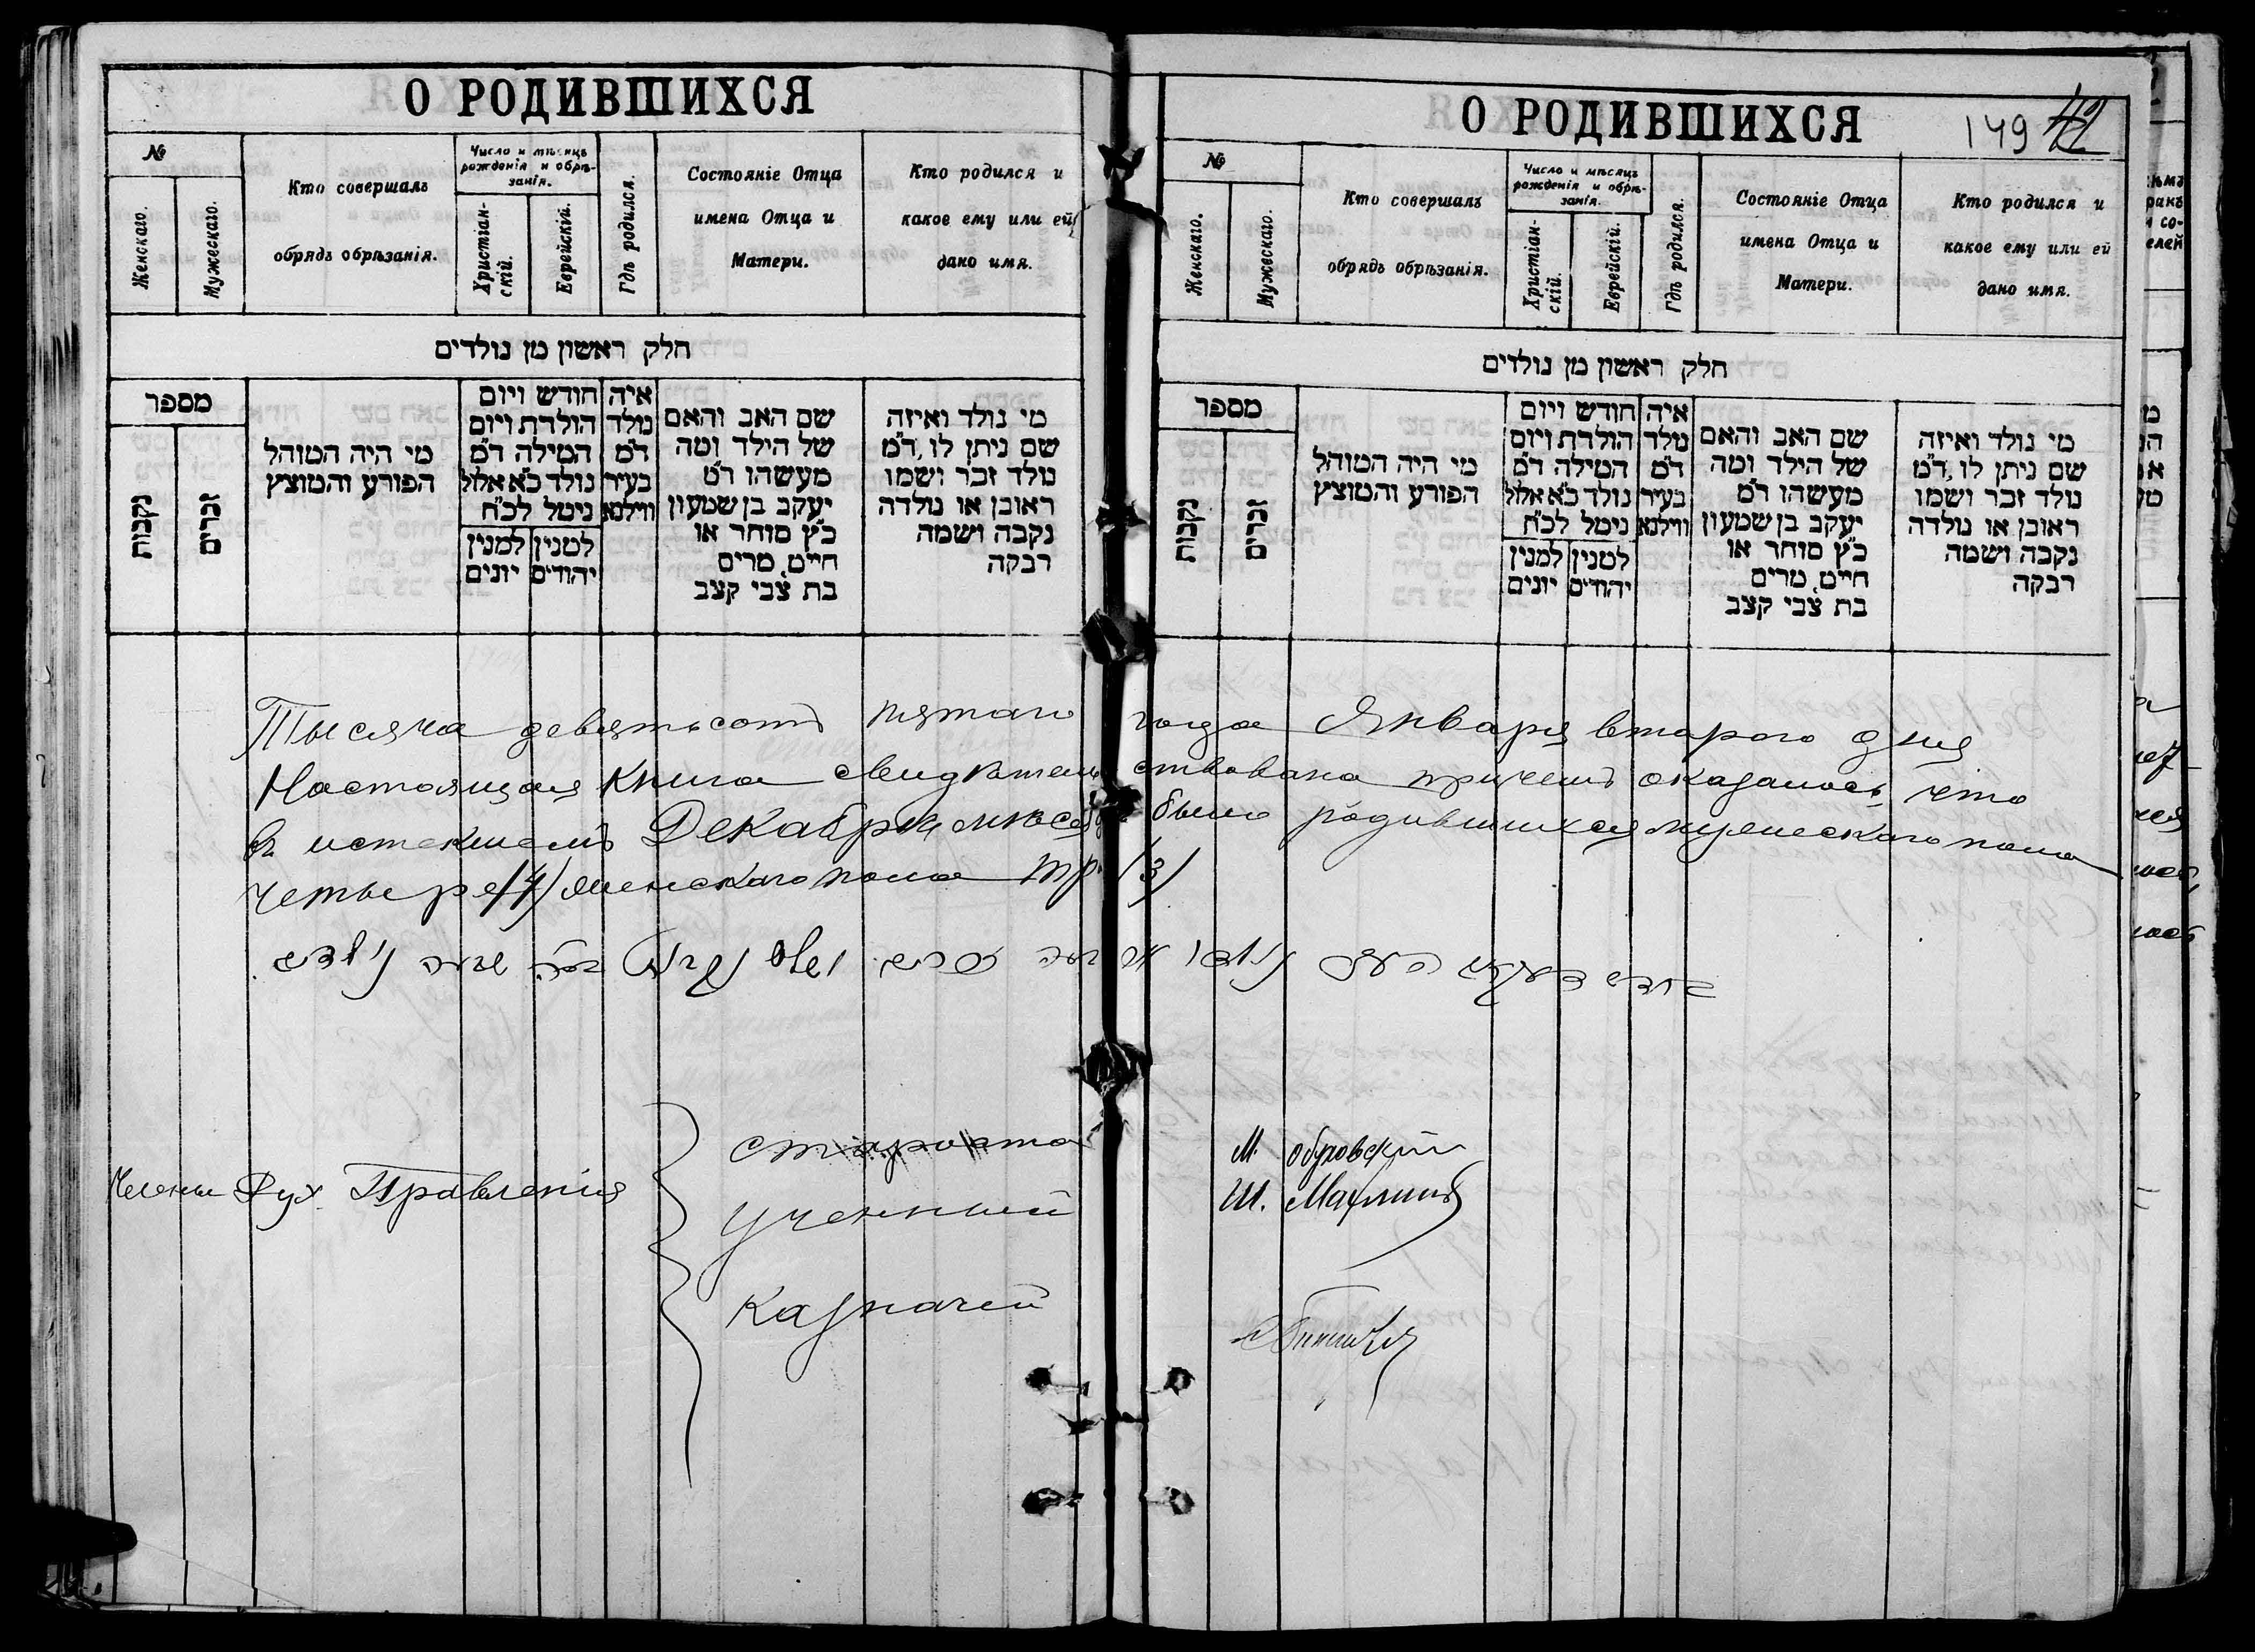 О РОДИВШИХСЯ
№
Женскаго.
Мужескаго.
Кто совершалъ
обрядъ обрѣзанія.
Число и мѣсяцъ
рожденія и обрѣ-
занія.
Христіан-
скій.
Еврейскій.
Гдѣ родился.
Состояніе Отца
имена Отца и
Матери.
Кто родился и
какое ему или ей
дано имя.
חלק ראשון מן נולדים
מספר
נקבות
זכרים
מי היה המוהל
הפורע והמוצץ
חודש ויום
הולדת ויום
המילה ד״מ
נולד כ״א אלול
ניטל לכ״ח
למנין יונים
למנין יהודים
איה
נולד
ד״מ
בעיר
ווילנא
שם האב והאם
של הילד ומה
מעשהו ד״מ
יעקב בן שמעון
כ״ץ סוחר או
חייט, מרים
בת צבי קצב
מי נולד ואיזה
שם ניתן לו, ד״מ
נולד זכר ושמו
ראובן או נולדה
נקבה ושמה
רבקה
О РОДИВШИХСЯ
149
№
Женскаго.
Мужескаго.
Кто совершалъ
обрядъ обрѣзанія.
Число и мѣсяцъ
рожденія и обрѣ-
занія.
Христіан-
скій.
Еврейскій.
Гдѣ родился.
Состояніе Отца
имена Отца и
Матери.
Кто родился и
какое ему или ей
дано имя.
חלק ראשון מן נולדים
מספר
נקבות
זכרים
מי היה המוהל
הפורע והמוצץ
חודש ויום
הולדת ויום
המילה ד״מ
נולד כ״א אלול
ניטל לכ״ח
למנין יונים
למנין יהודים
איה
נולד
ד״מ
בעיר
ווילנא
שם האב והאם
של הילד ומה
מעשהו ד״מ
יעקב בן שמעון
כ״ץ סוחר או
חייט, מרים
בת צבי קצב
מי נולד ואיזה
שם ניתן לו, ד״מ
נולד זכר ושמו
ראובן או נולדה
נקבה ושמה
רבקה
Тысяча девятьсотъ пятаго года Января втораго дня
Настоящая книга свидѣтельствована причемъ оказалось что
въ истекшемъ Декабрѣ мѣсяцѣ было родившихся мужескаго пола
четыре /4/ женскаго пола три /3/
Члены Дух. Правленія
староста М.
Ученный Ш.
Казначей